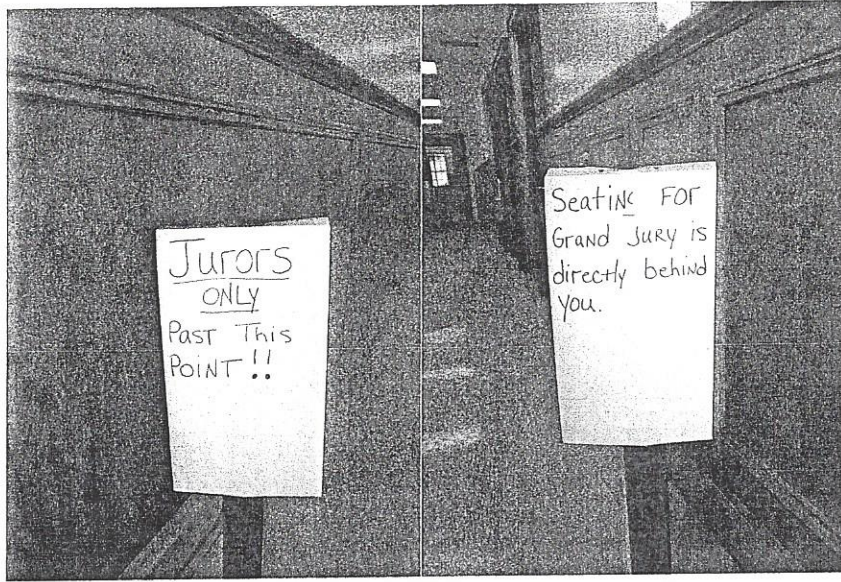 Jurors
ONLY
Past This
Point!!
Seating For
Grand Jury is
directly behind
you.